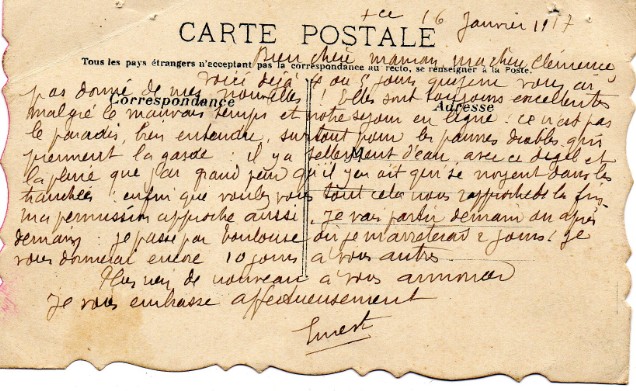 + ce 16 Janvier 1917
CARTE POSTALE
Bien chère maman, ma chère Clémence
Tous les pays étrangers n'acceptent pas la correspondance au recto, se renseigner à la Poste.
Voici déjà 4 ou 5 jours que je ne vous ai
pas donné de mes nouvelles. Elles sont toujours excellentes
Correspondance Adresse
malgré le mauvais temps et notre séjour en ligne : ce n'est pas
le paradis, bien entendu, surtout pour les pauvres diables qui
prennent la garde : il y a tellement d'eau, avec ce dégel et
M
la pluie que j'ai grand peur qu'il y en ait qui se noyent dans les
tranchées : enfin que voulez vous tout cela nous rapproche de la fin,
ma permission approche aussi. Je vais partir demain ou après
demain : je passe par Toulouse où je m'arrêterai 2 jours : je
vous donnerai encore 10 jours à vous autres.
Plus rien de nouveau à vous annoncer
Je vous embrasse affectueusement
Ernest